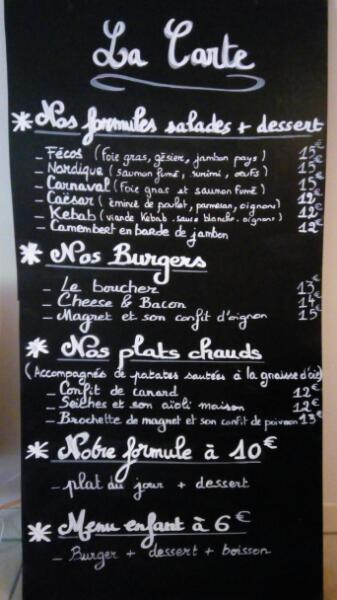 La Carte
* Nos formules salades + dessert
_ Fécos (foie gras, gésier, jambon pays) 15€
_ Nordique (saumon fumé, surimi, œufs) 15€
_ Carnaval (foie gras et saumon fumé) 15€
_ Caësar (émincé de poulet, parmesan, oignons) 12€
_ Kebab (viande Kebab. sauce blanche. oignons) 12€
_ Camembert en barde de jambon 12€
* Nos Burgers
_ Le boucher 13€
_ Cheese & Bacon 14€
_ Magret et son confit d'oignon 15€
* Nos plats chauds
(Accompagnés de patates sautées à la graisse d'oie)
_ Confit de canard 12€
_ Seiches et son aïoli maison 12€
_ Brochette de magret et son confit de poivron 13€
* Notre formule à 10€
_ plat du jour + dessert
* Menu enfant à 6€
_ Burger + dessert + boisson